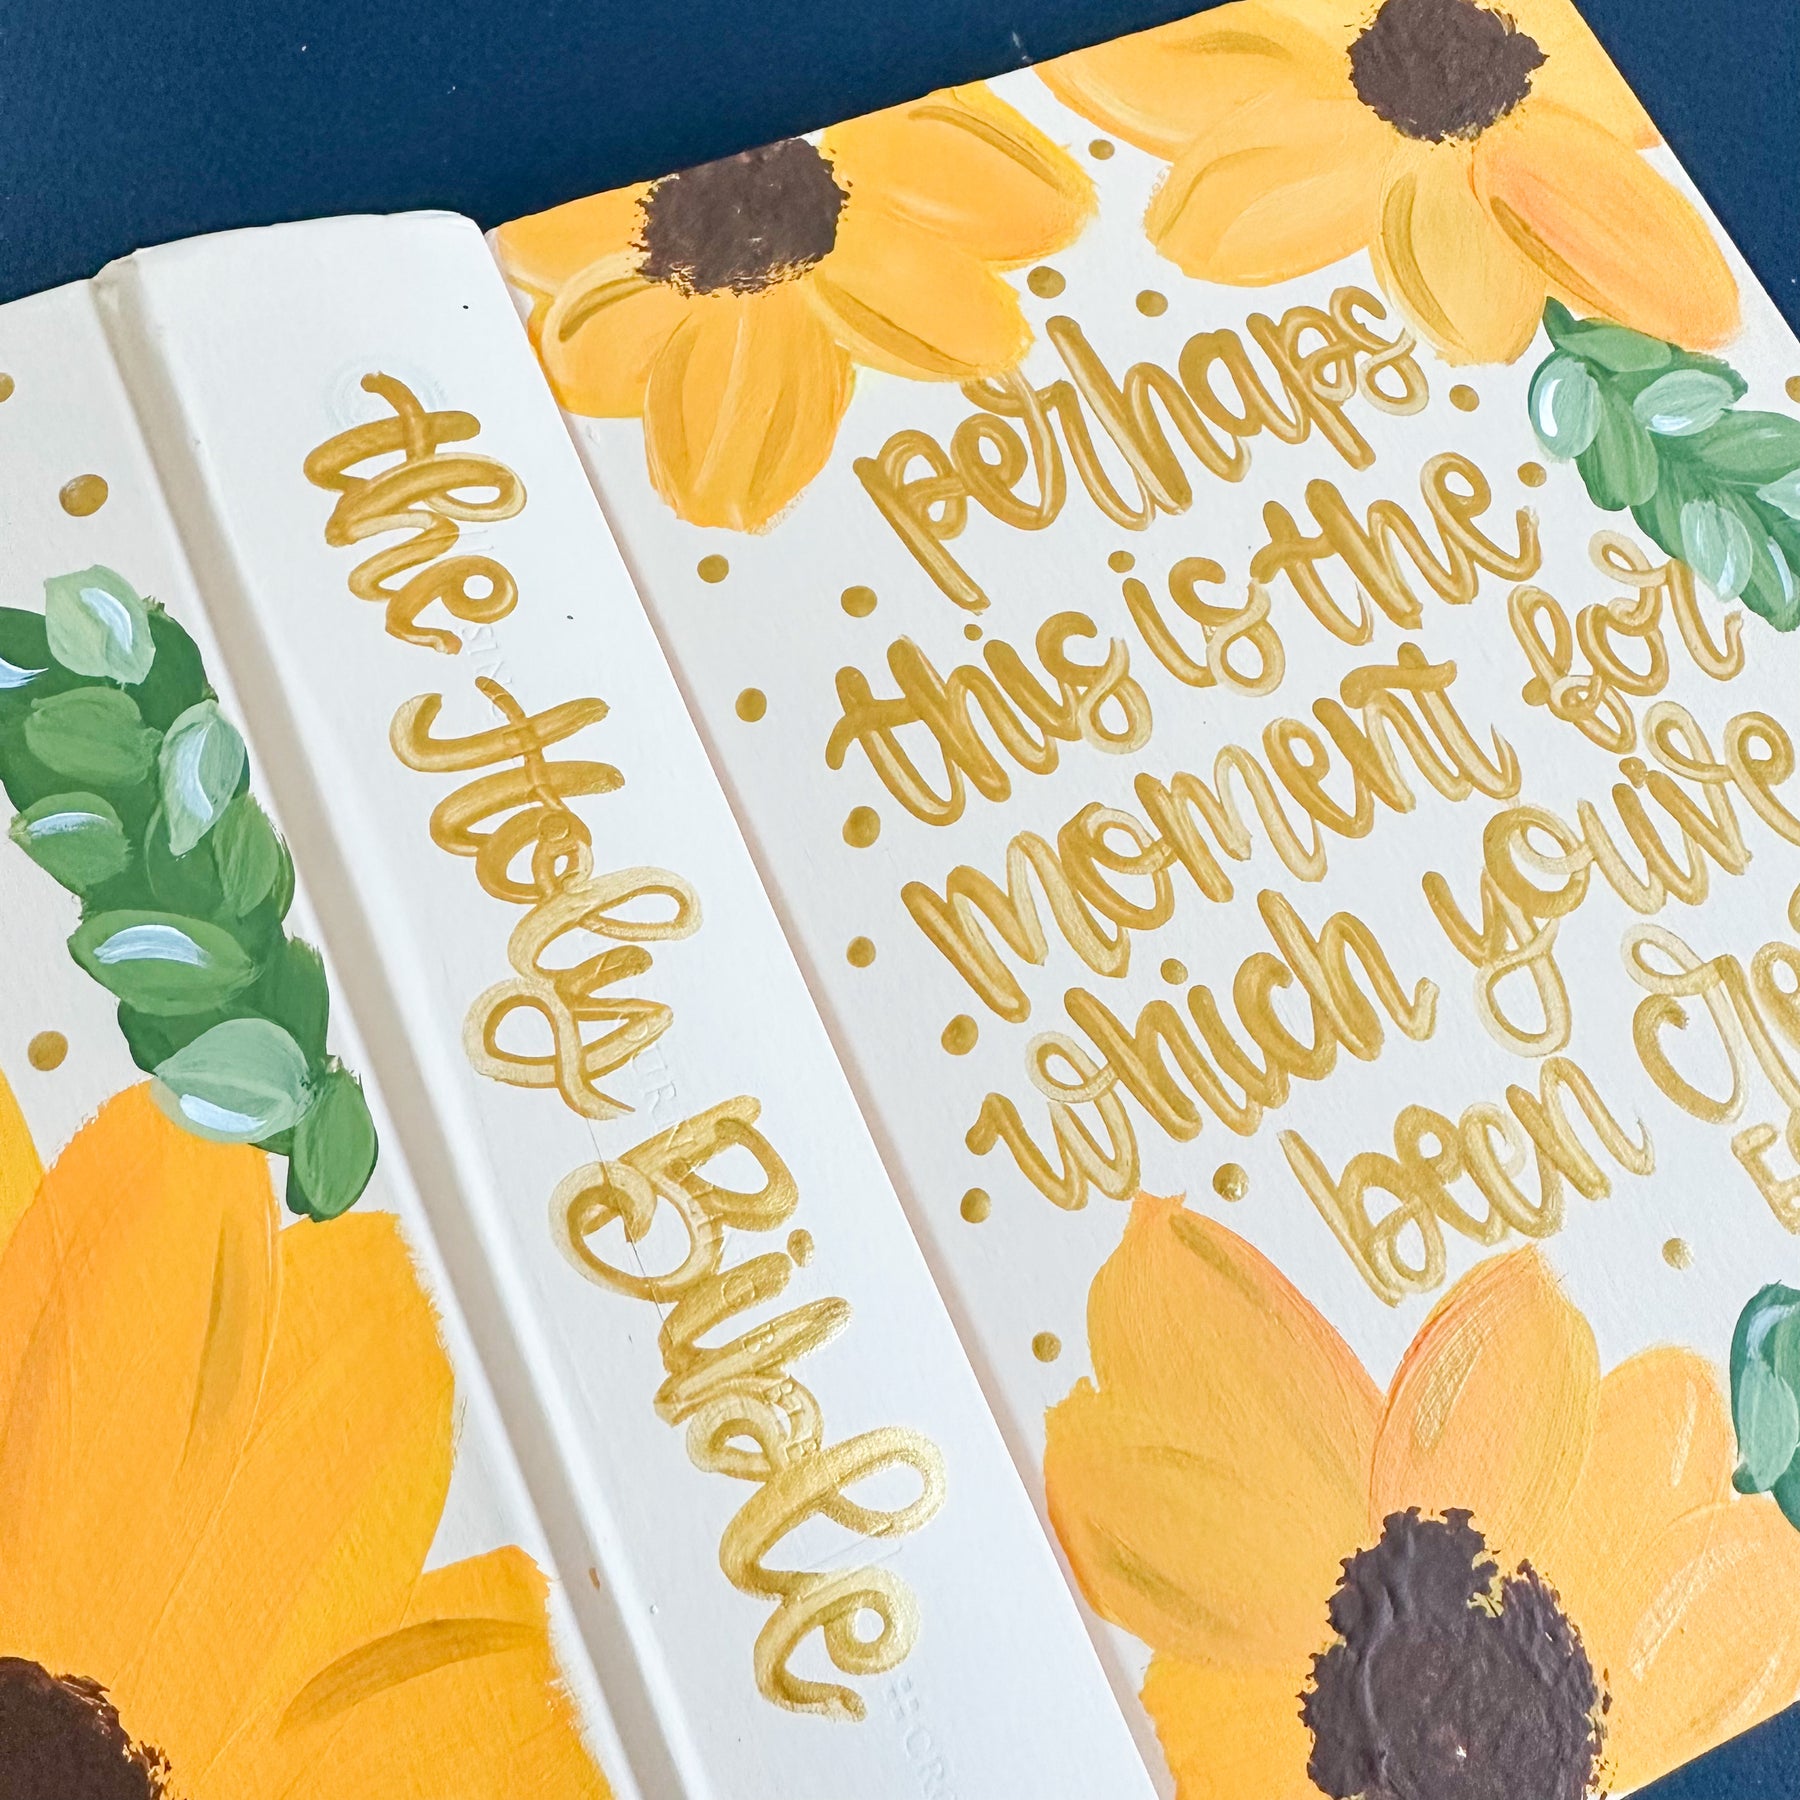 the Holy Bible
perhaps
this is the
moment for
which you've
been